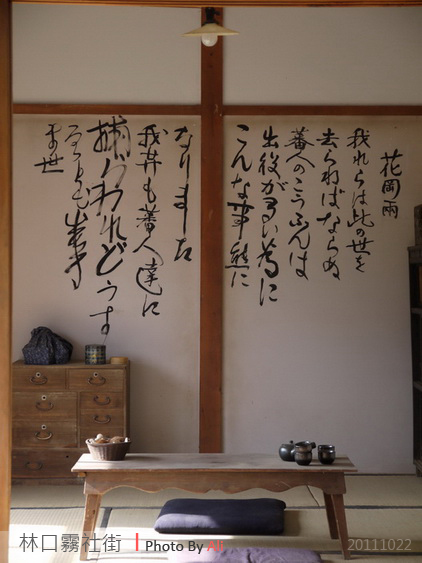 花岡兩
我れらは此の世を
去らねばならぬ
蕃人のこうふんは
出役が多い為に
こんな事態に
なりました
我等も蕃人達に
捕らわれどうす
ることも出来
ま世
林口霧社街 | Photo By Ali
20111022